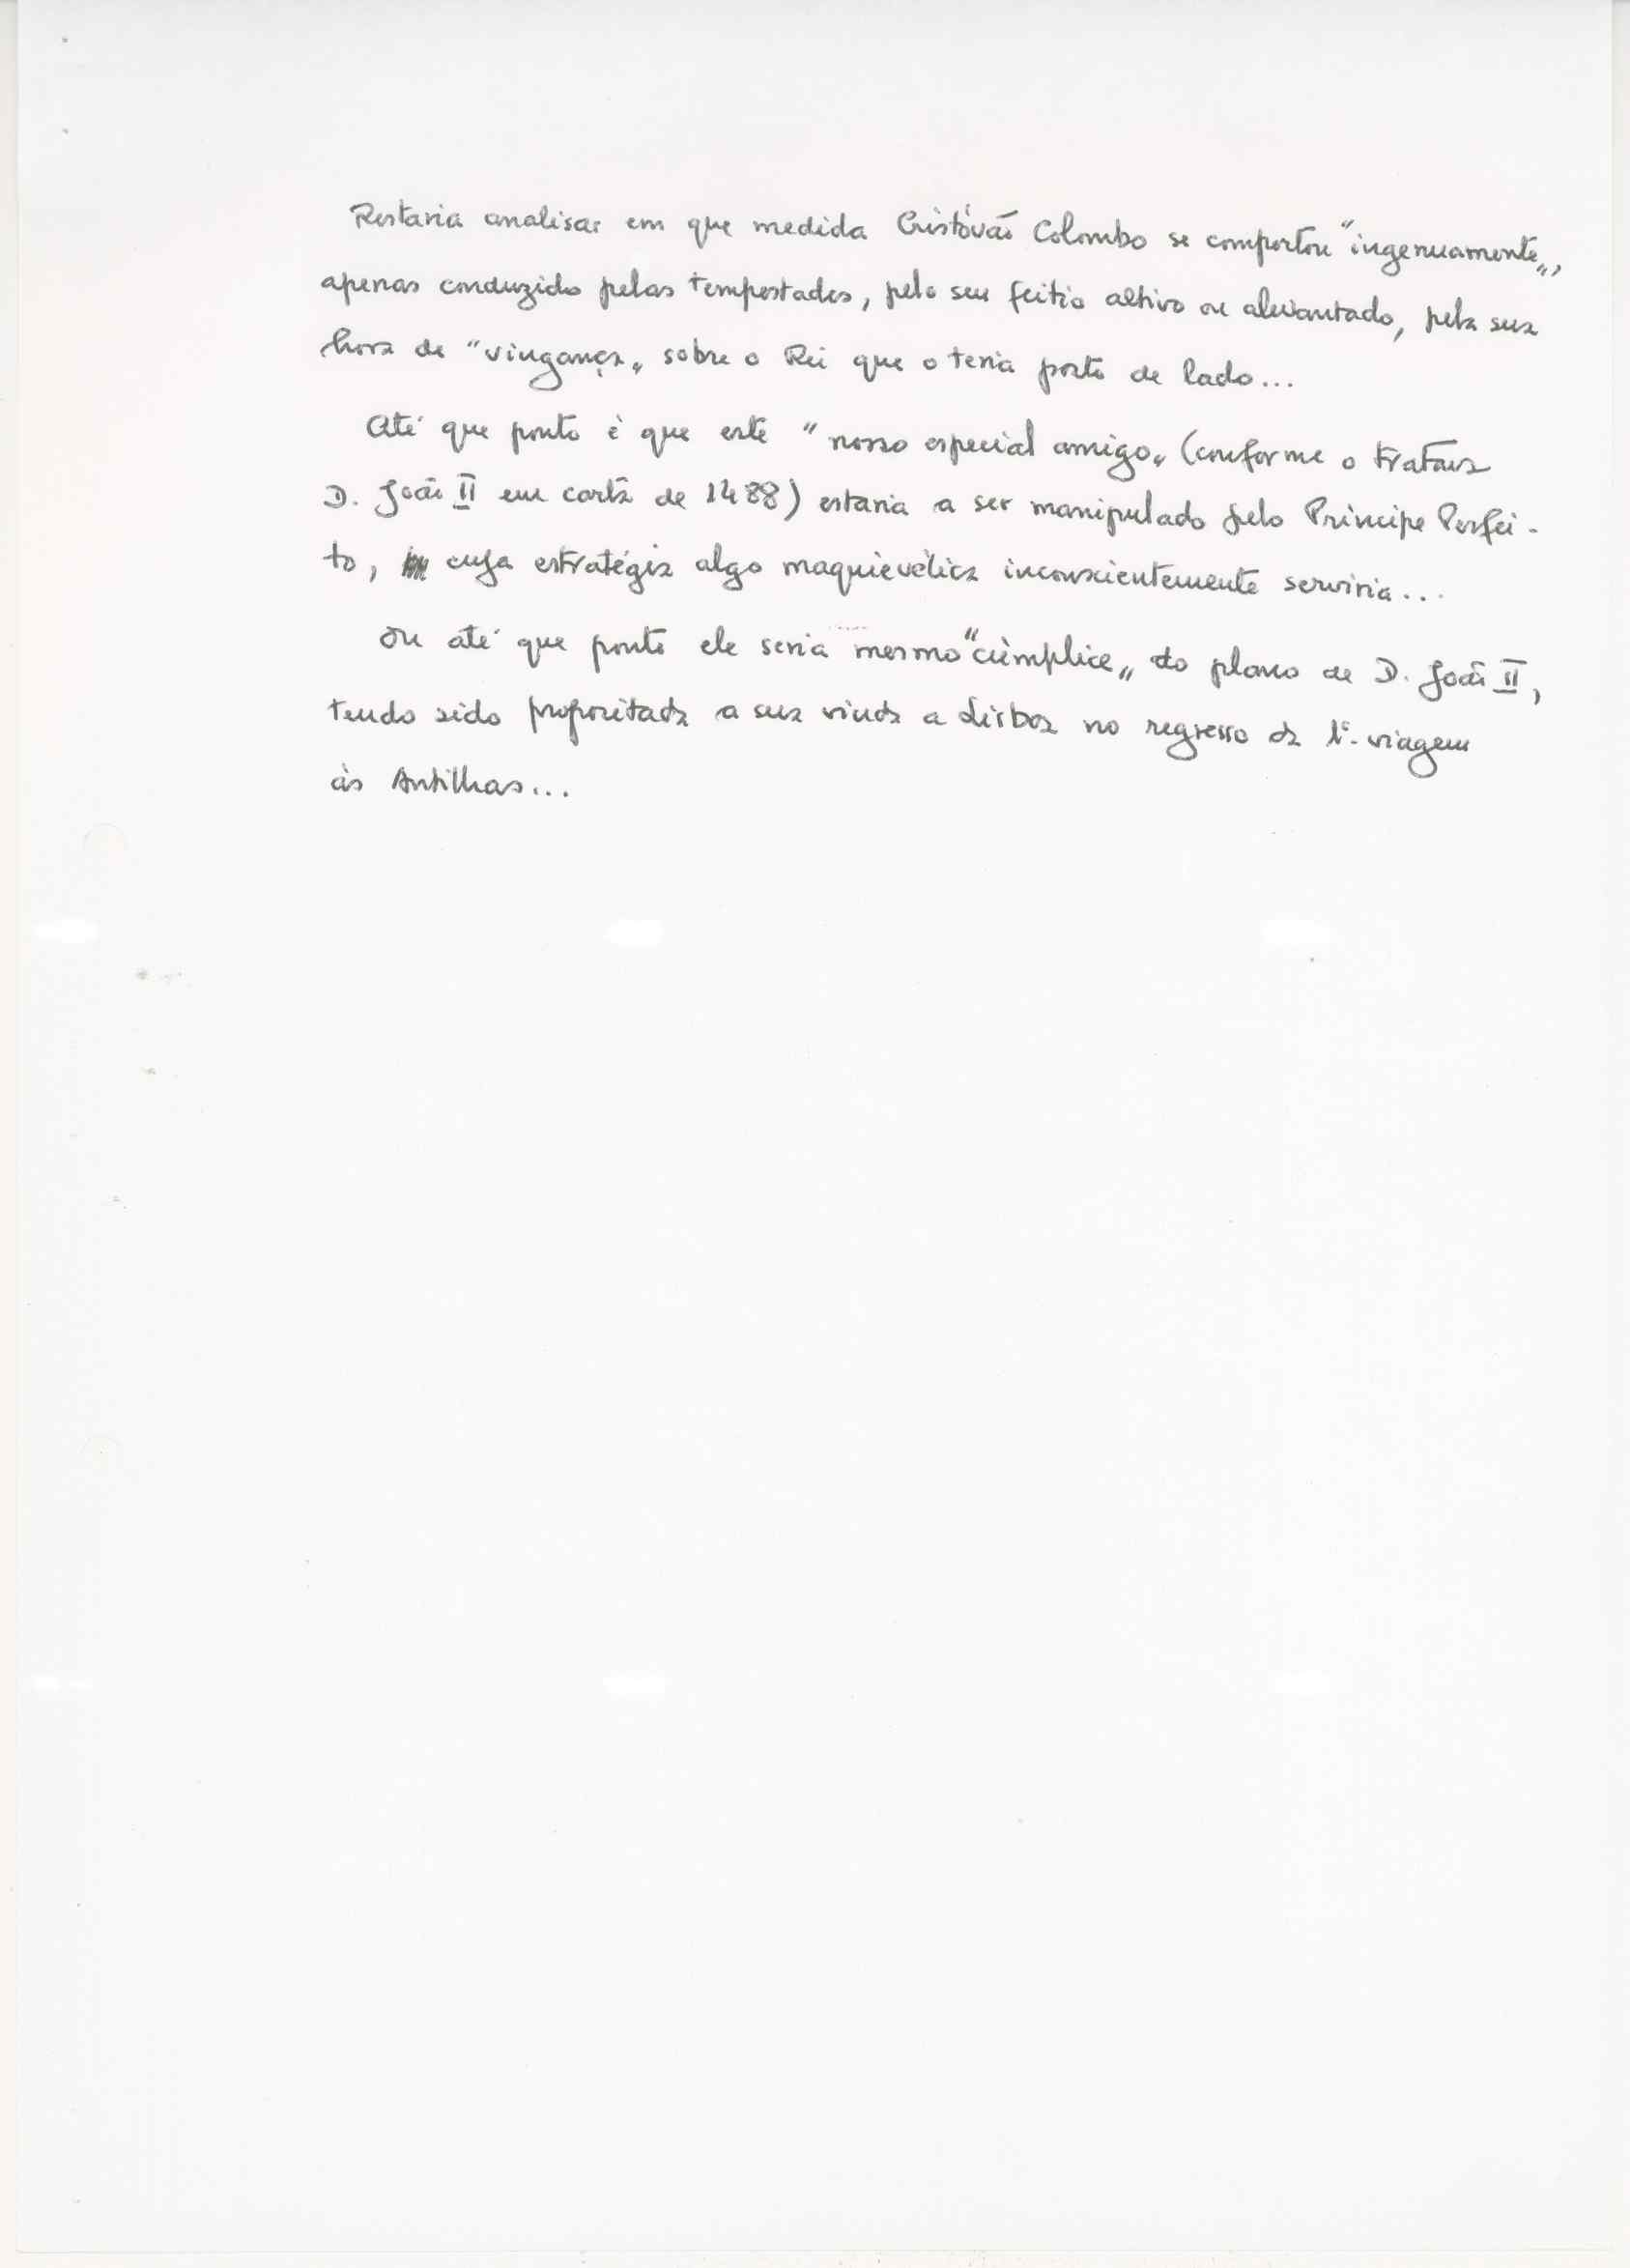 Restaria analisar em que medida Cristóvão Colombo se comportou "ingenuamente",
apenas conduzido pelas tempestades, pelo seu feitio altivo ou alevantado, pela sua
hora de "vingança" sobre o Rei que o teria posto de lado...
Até que ponto é que este "nosso especial amigo" (conforme o tratava
D. João II em carta de 1488) estaria a ser manipulado pelo Príncipe Perfei-
to, cuja estratégia algo maquievélica inconscientemente serviria...
Ou até que ponto ele seria mesmo "cúmplice" do plano de D. João II,
tendo sido propositada a sua vinda a Lisboa no regresso da 1ª. viagem
às Antilhas...